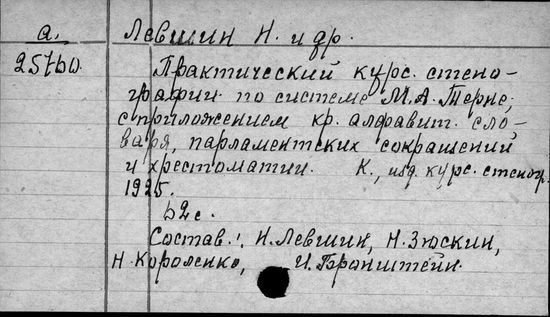 а. Левшин Н. и др.
25760.
Практический курс. стено-
графии по системе М.А. Терне,
с приложением кр. алфавит. сло-
варя, парламентских сокращений
и хрестоматии. К., изд. курс. стеногр.
1925.
62 с.
Состав.: Н. Левшин, Н. Зюскин,
Н. Короленко, И. Бронштейн.